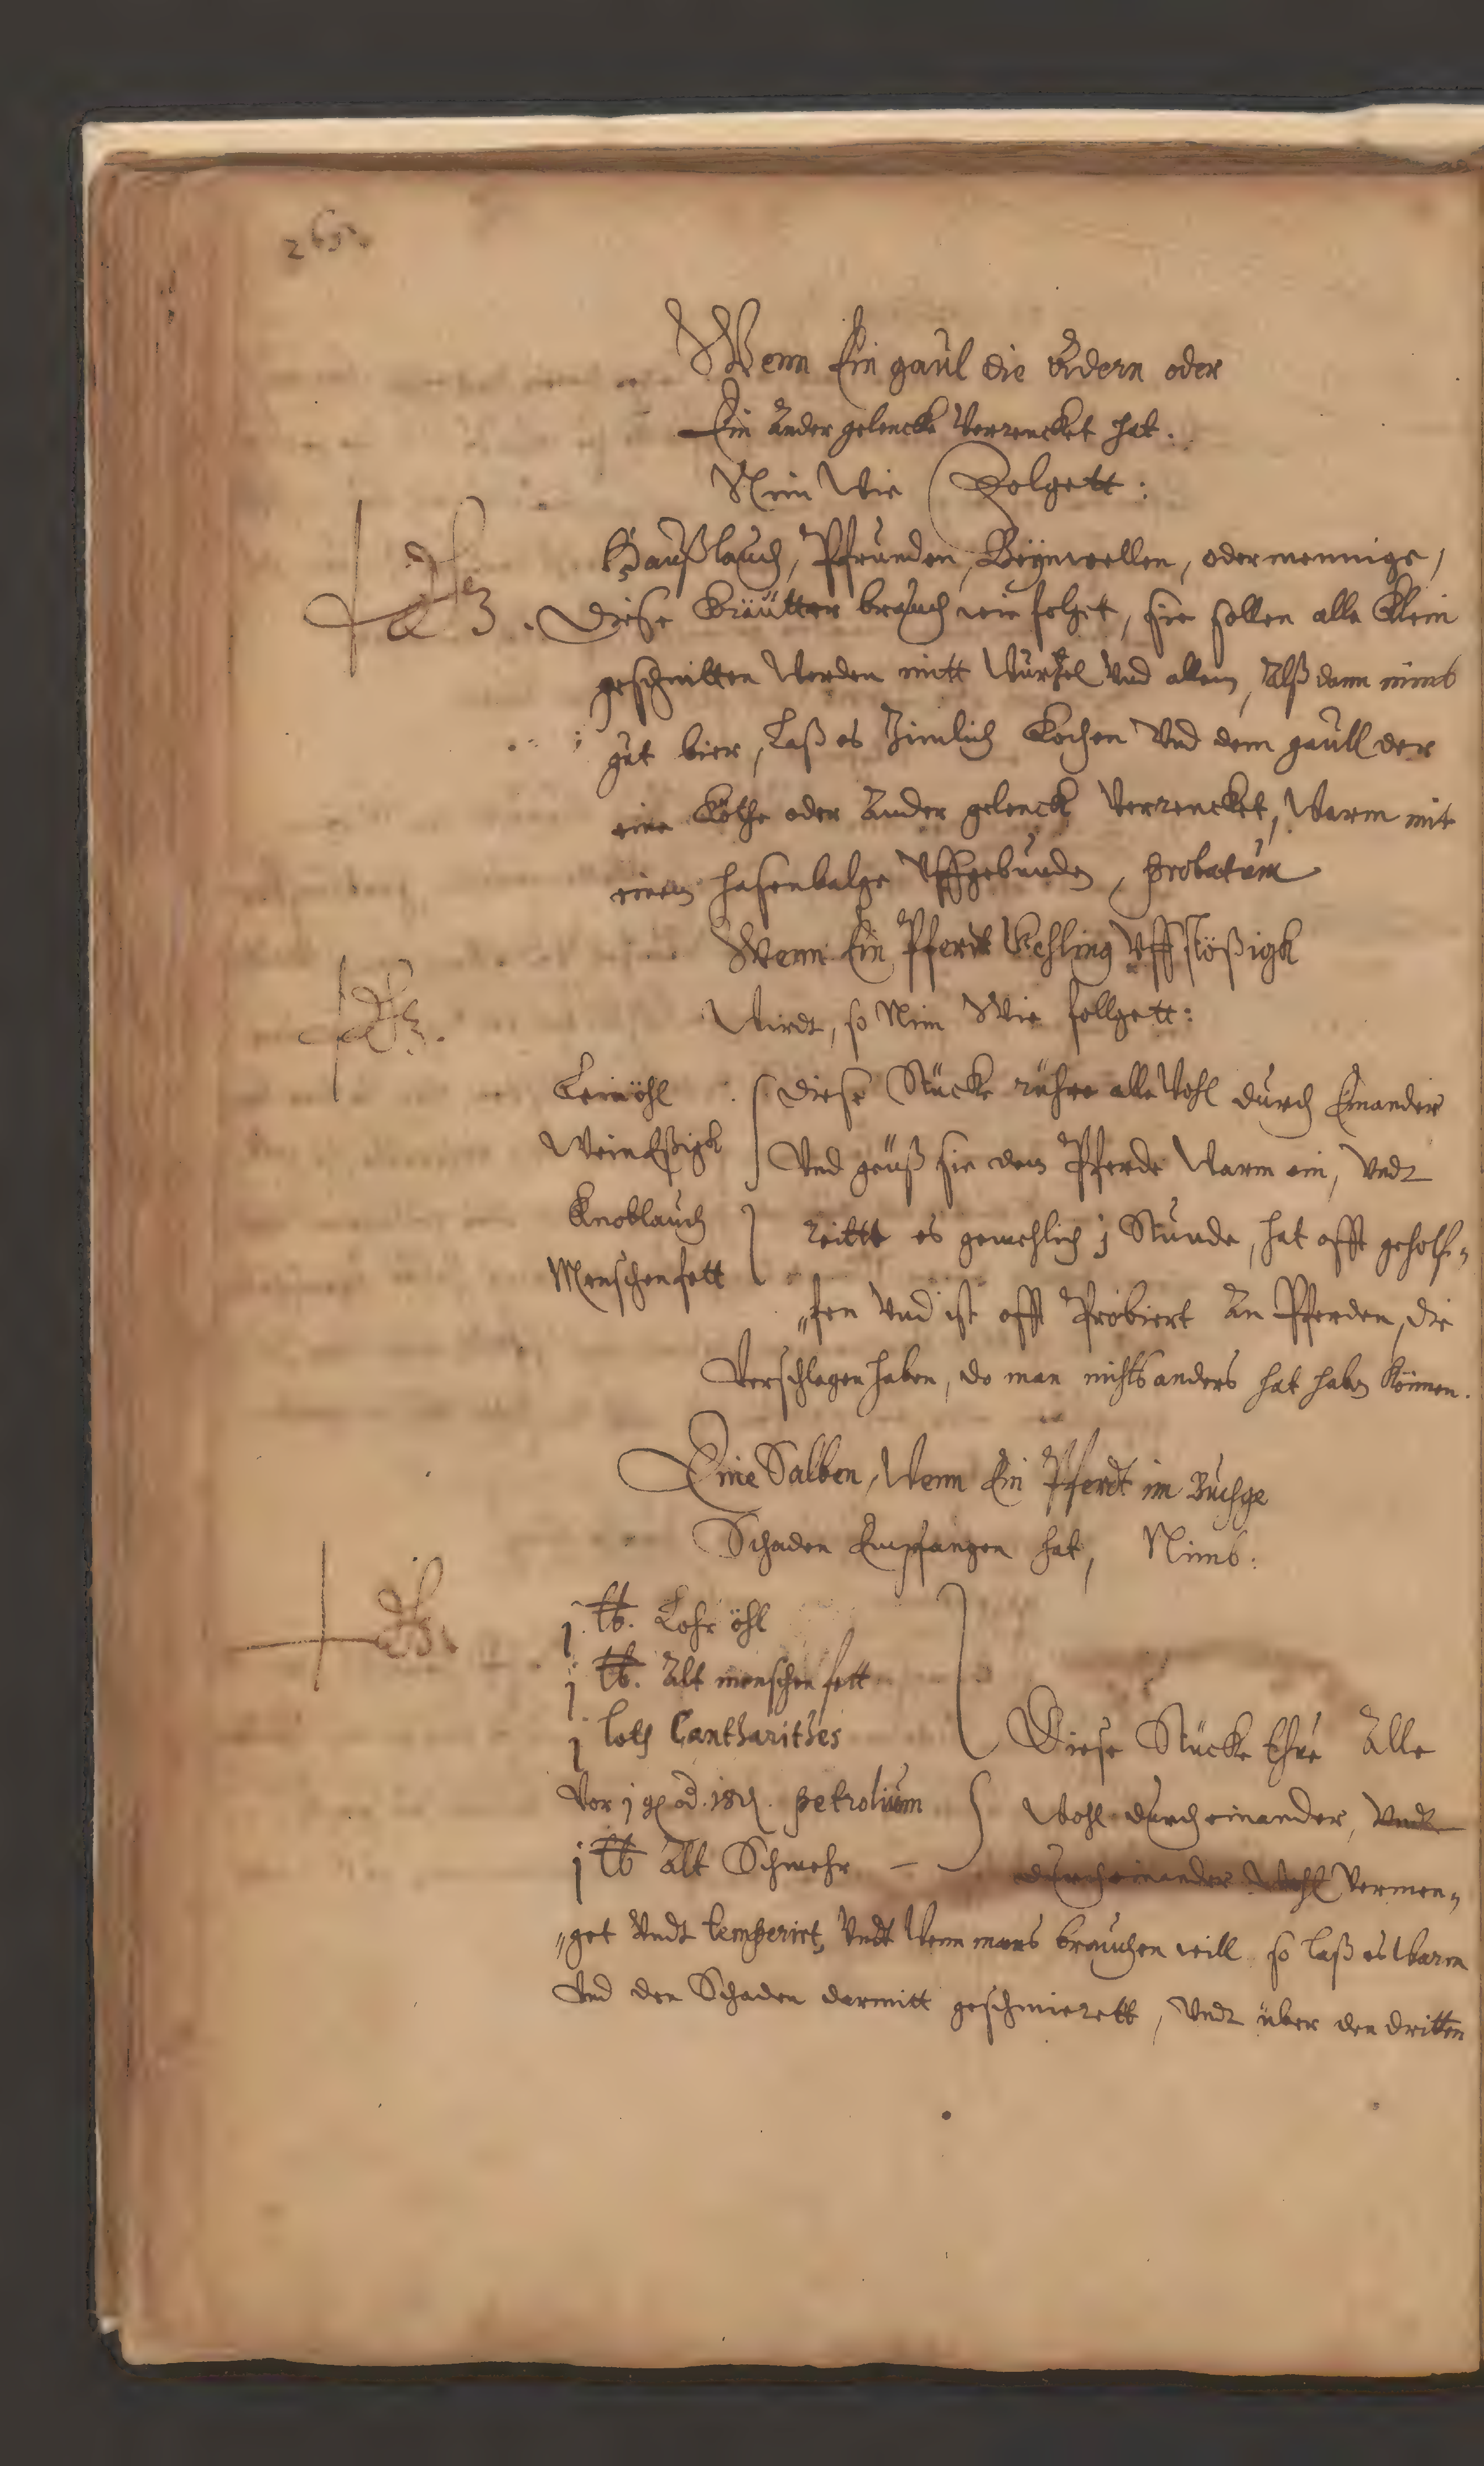 265.
Wenn Ein gaul die Adern oder
Ein ander gelencke Verrencket hat.
Nim Wie Folgett:
Haußlauch, Pfrunden, Beynwellen, odermennige,
Diese Kräutter brauch wie folget, sie sollen alle klein
geschnitten Werden mitt Wurtzel Vnd allem, Alß dann nimb
gut bier, Laß es Zimlich Kochen Vnd dem gaull der
eine Köthe oder Ander gelenck Verrencket, Warm mit
einem hasenbalge Vffgebunden, probatum
Wenn Ein Pferdt Vehling Vffstößigk
Wirdt, so Nim Wie follgett:
Leinöhl
WeinEßigk
Knoblauch
Menschenfett
Diese Stücke rühre alle Wohl durch Einander
Vnd geuß sie dem Pferde Warm ein, Vndt
reitt es gemehlich j Stunde, hat offt geholf„
„fen Vnd ist offt Probiert An Pferden, die
Verschlagen haben, do man nichts anders hat haben Können.
Eine Salben, Wenn Ein Pferdt im Buchge
Schaden Empfangen hat, Nimb:
j ℔. Lohr öhl
j ℔. Alt menschen fett
j loth Cantharithes
Vor j petrolium
j ℔ Alt Schmehr
Diese Stücke Alle
Wohl durch einander, Vndt
durch einander Wohl Vermen„
„get Vndt temperirt, Vndt Wenn mans brauchen will so laß es Warm
Vnd den Schaden darmitt geschmierett, Vndt über den dritten